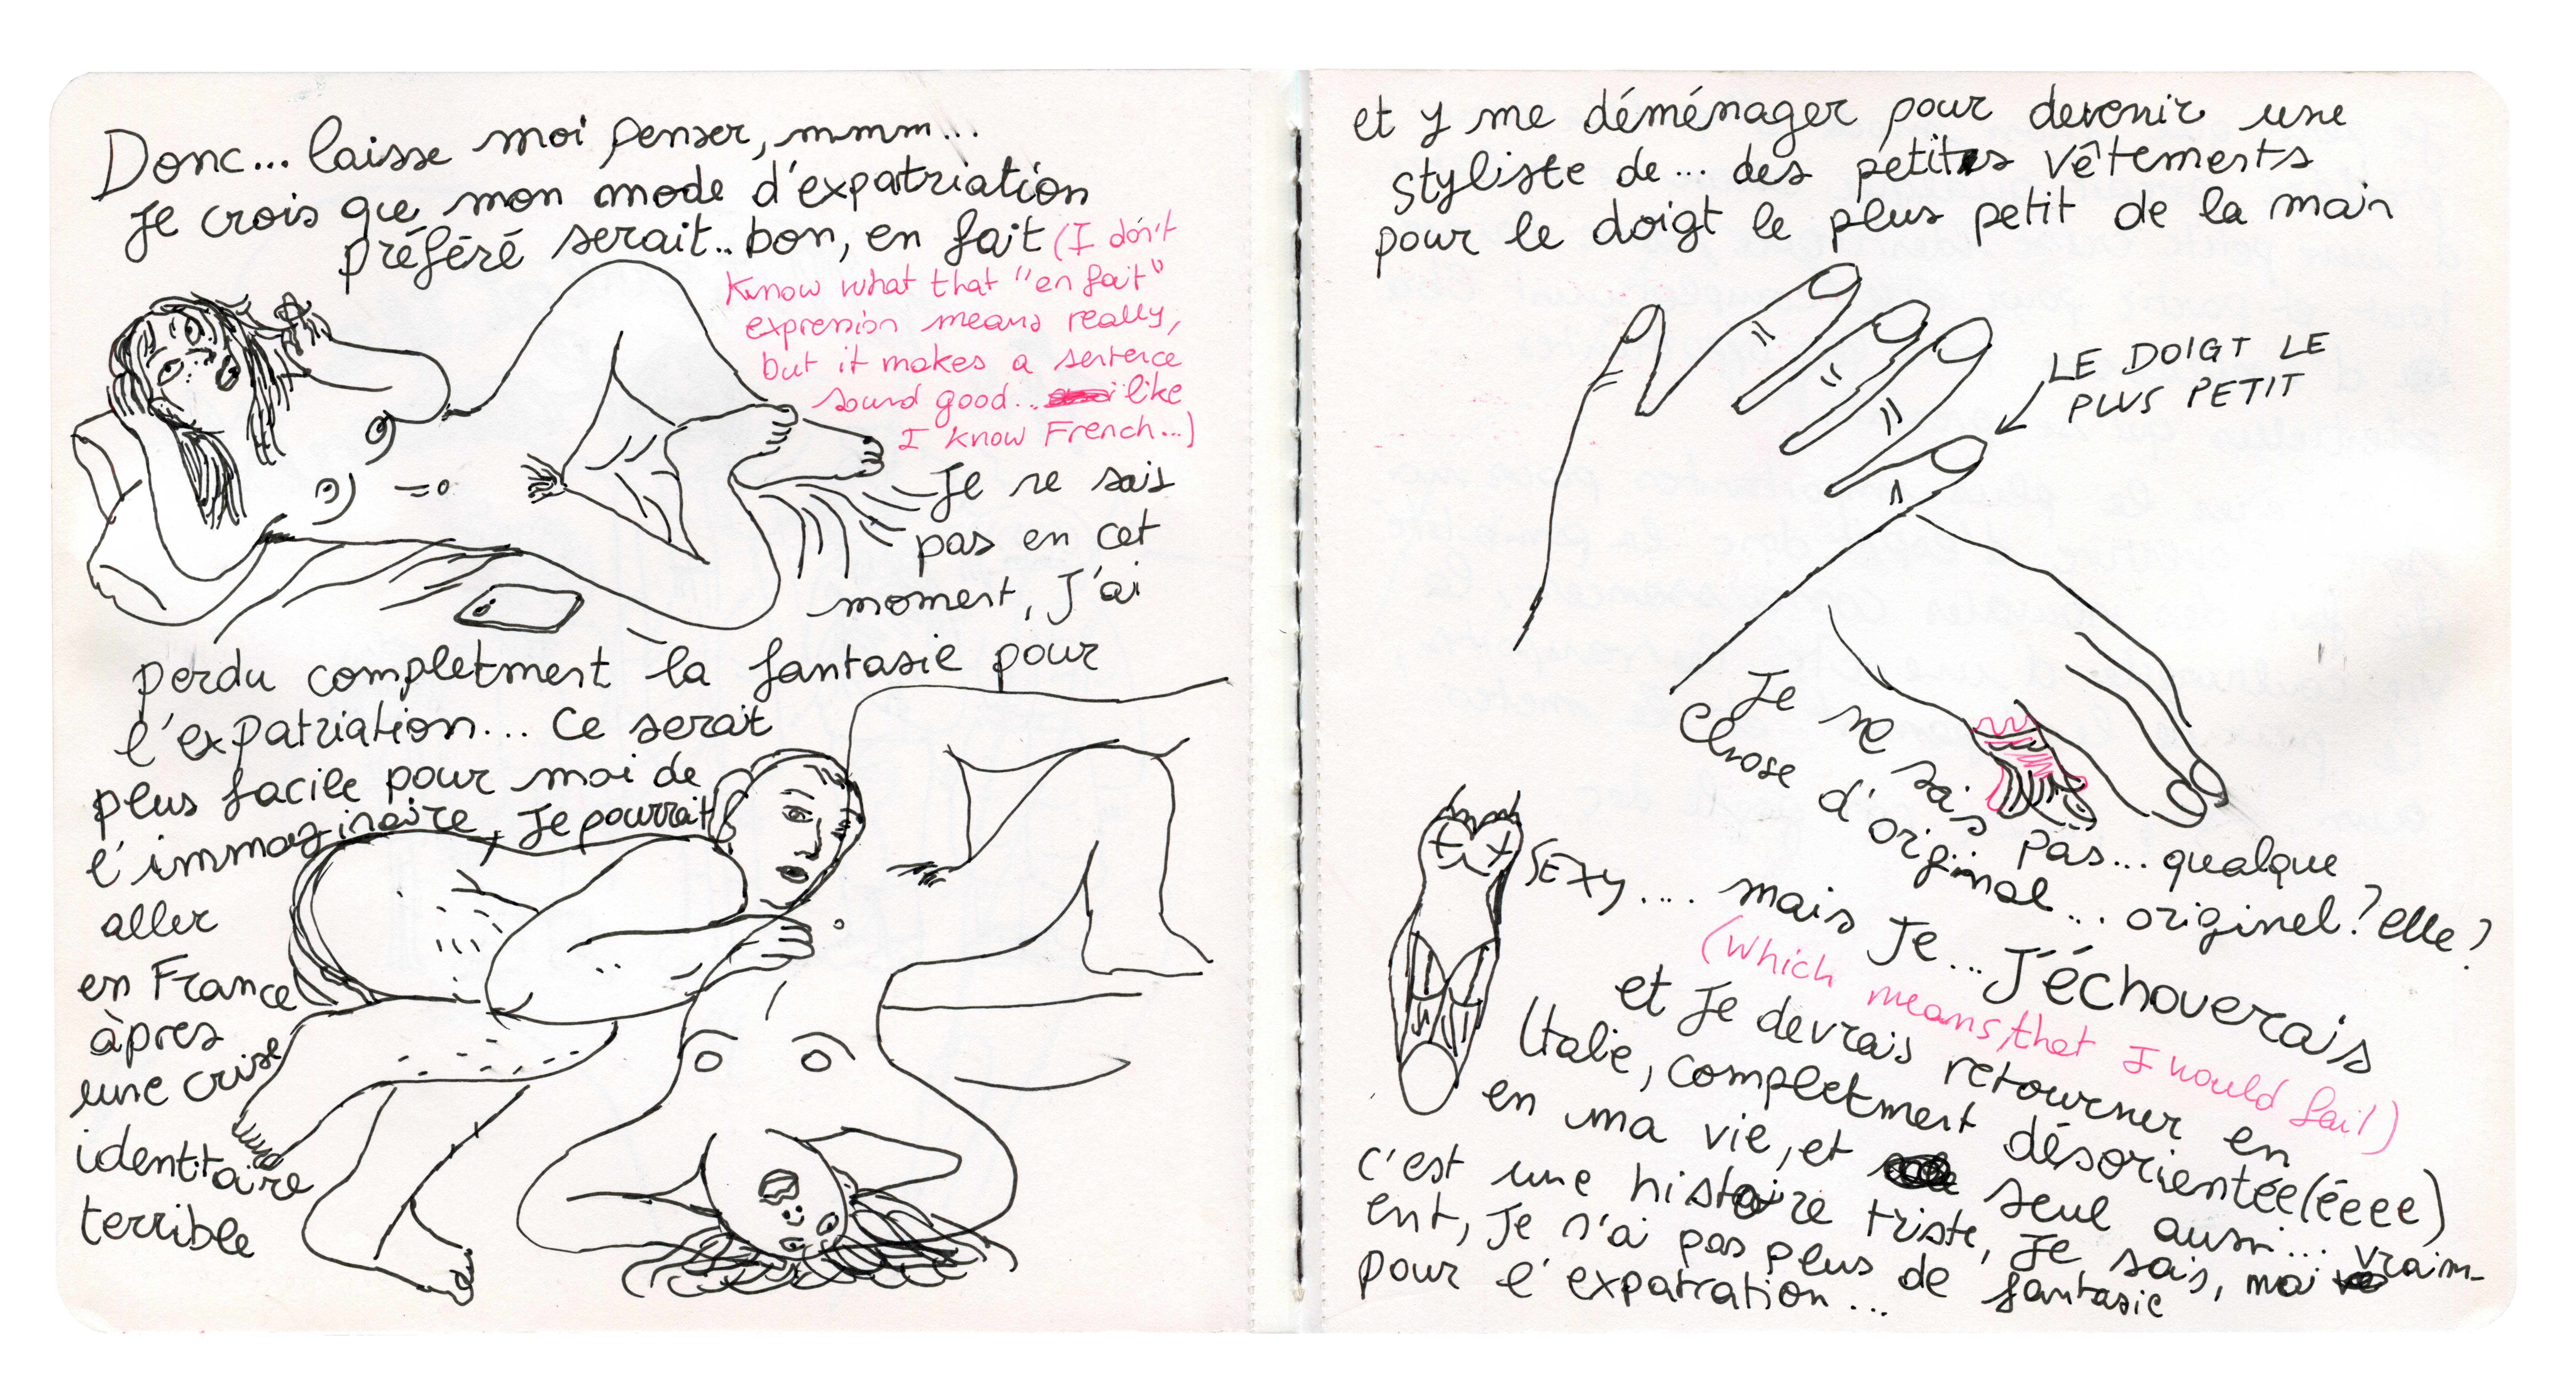 Donc... laisse moi penser, mmm...
Je crois que mon mode d'expatriation
préféré serait.. bon, en fait (I don't
know what that "en fait"
expression means really,
but it makes a sentence
sound good... like
I know French...)
Je ne sais
pas en cet
moment, J'ai
perdu completment la fantasie pour
l'expatriation... Ce serait
plus facile pour moi de
l'immaginaire, Je pourrait
aller
en France
àpres
une crise
identitaire
terrible
et y me déménager pour devenir une
styliste de... des petits vêtements
pour le doigt le plus petit de la main
LE DOIGT LE
PLUS PETIT
Je ne sais pas... qualque
chose d'original... originel? elle?
SExy.... mais Je... J'échouerais
(which means, that I would fail)
et Je devrais retourner en
Italie, completment désorientée (éeee)
en ma vie, et seul aussi... vraim-
c'est une histoire triste, Je sais, mai
ent, Je n'ai pas plus de fantasie
pour l'expatration...